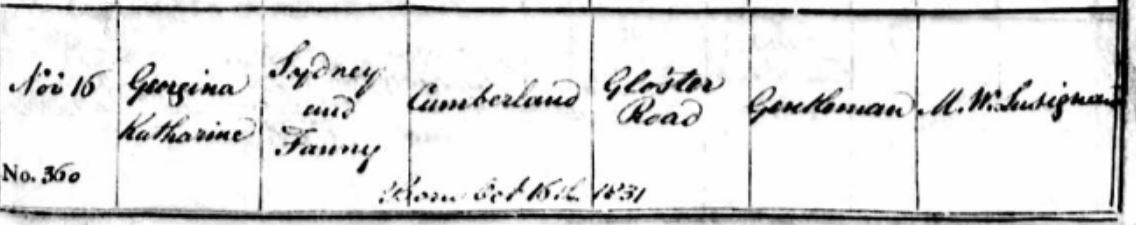 Nov 16
Georgina
Katharine
Sydney
and
Fanny
Cumberland
Gloster
Road
Gentleman
M. W. Lusignan
No. 360
Born Oct 16th 1831